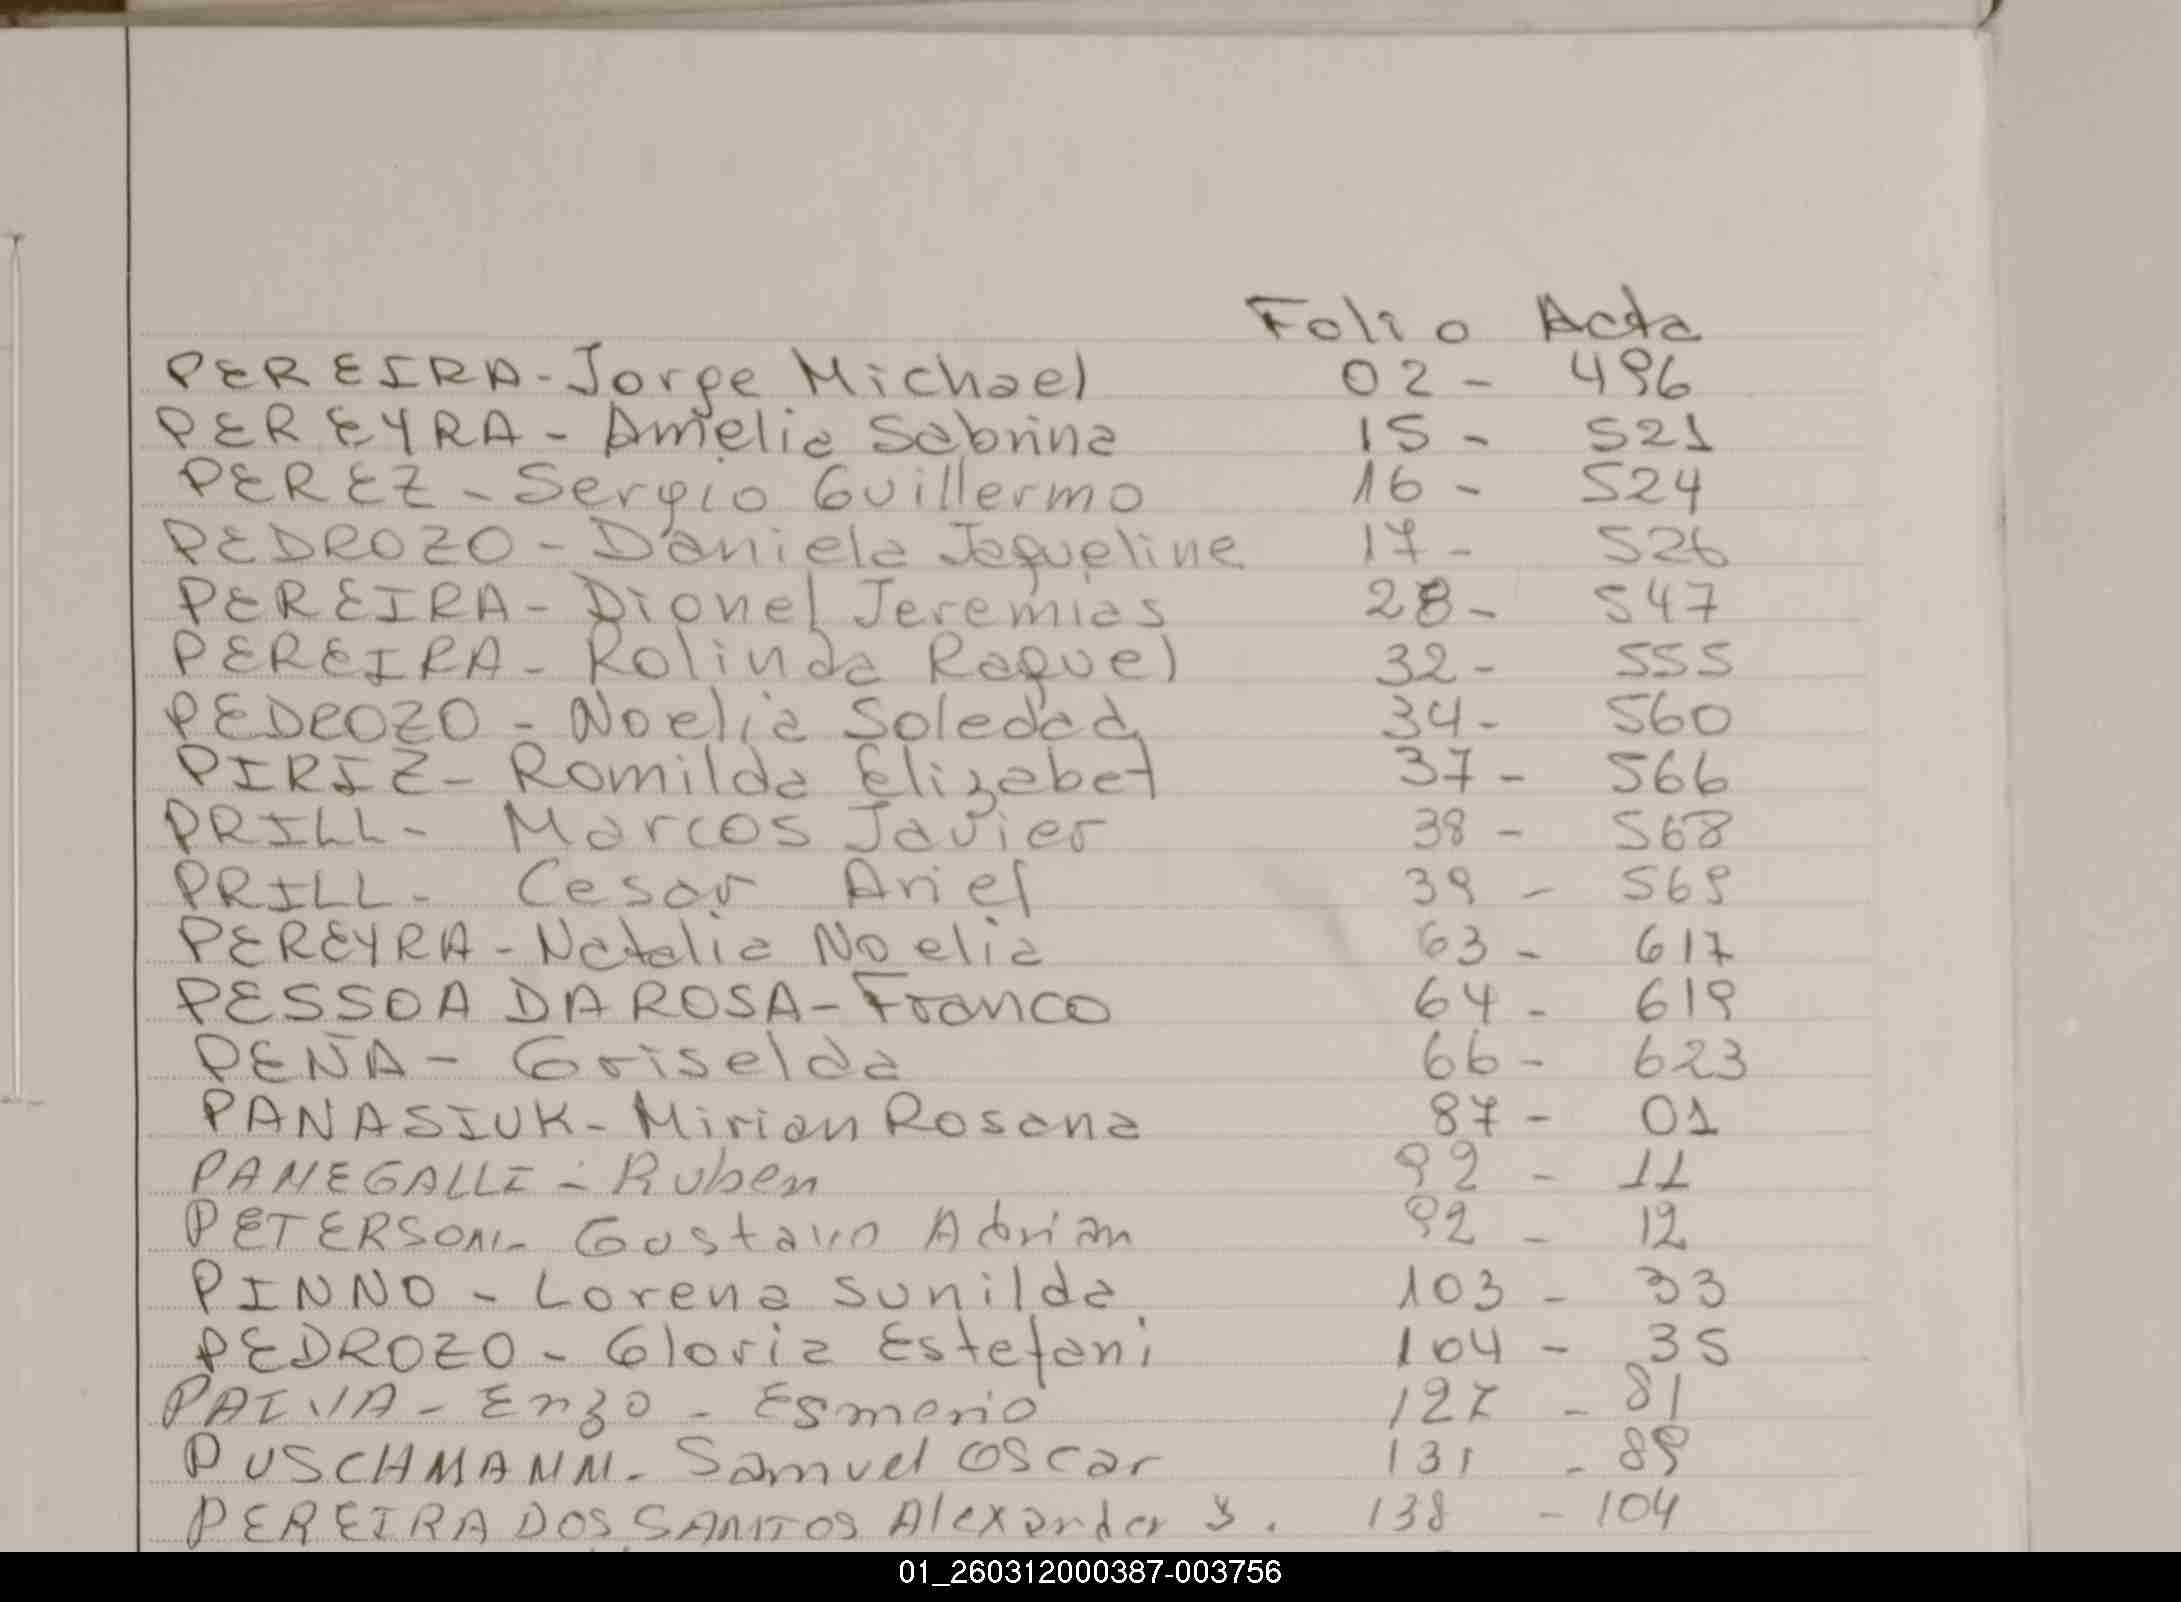 Folio Acta
PEREIRA - Jorge Michael 02 - 496
PEREYRA - Amelia Sabrina 15 - 521
PEREZ - Sergio Guillermo 16 - 524
PEDROZO - Daniela Jaqueline 17 - 526
PEREIRA - Dionel Jeremias 28 - 547
PEREIRA - Rolinda Raquel 32 - 555
PEDROZO - Noelia Soledad 34 - 560
PIRIZ - Romilda Elizabet 37 - 566
PRILL - Marcos Javier 38 - 568
PRILL - Cesar Ariel 39 - 569
PEREYRA - Natalia Noelia 63 - 617
PESSOA DA ROSA - Franco 64 - 619
PEÑA - Griselda 66 - 623
PANASIUK - Mirian Rosana 87 - 01
PANEGALLI - Ruben 92 - 11
PETERSON - Gustavo Adrian 92 - 12
PINNO - Lorena Sunilda 103 - 33
PEDROZO - Gloria Estefani 104 - 35
PAIVA - Enzo - Esmerio 127 - 81
PUSCHMANN - Samuel Oscar 131 - 89
PEREIRA DOS SANTOS Alexander 138 - 104
01_260312000387-003756